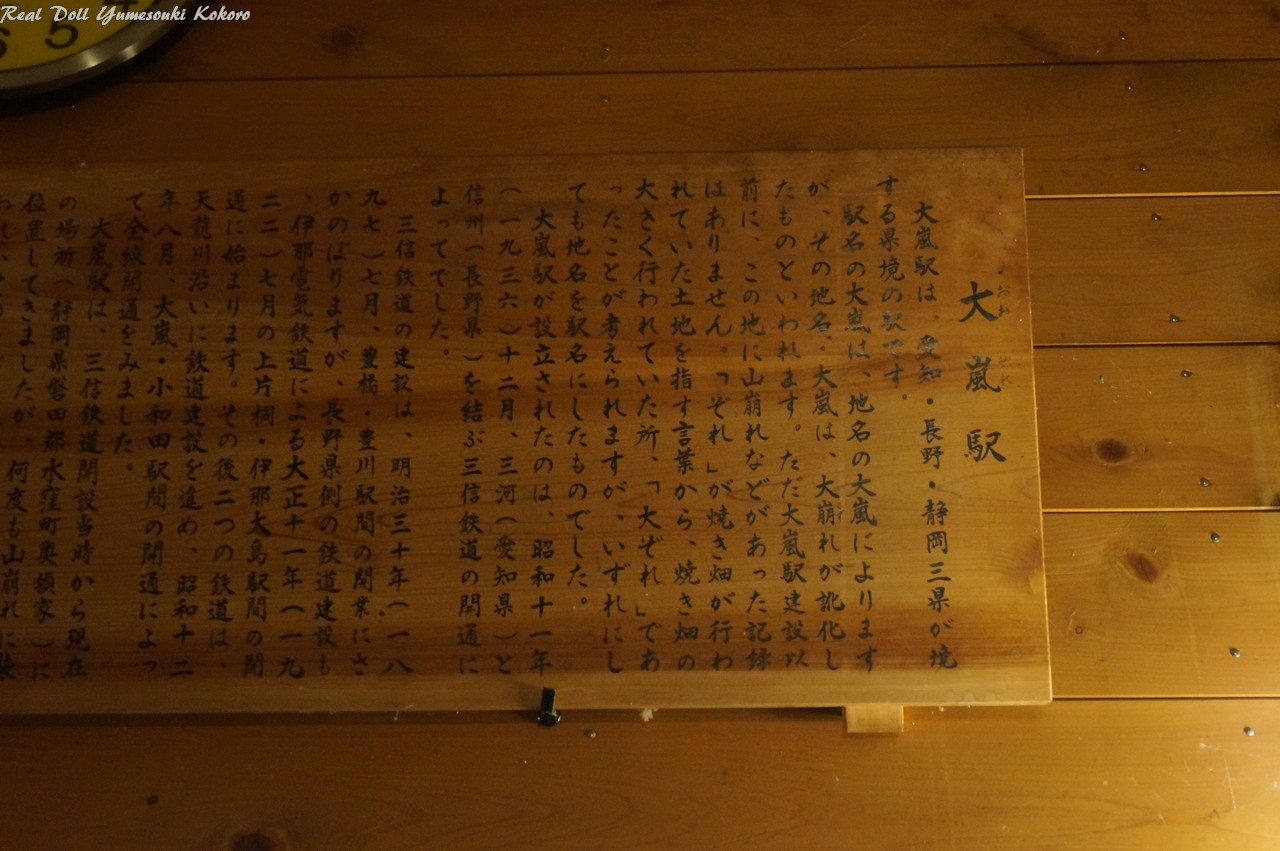 Real Doll Yumesouki Kokoro
6 5
大嵐駅
おお ぞれ
大嵐駅は、愛知・長野・静岡三県が境
する県境の駅です。
駅名の大嵐は、地名の大嵐によります
が、その地名・大嵐は、大崩れが訛化し
たものといわれます。ただ大嵐駅建設以
前に、この地に山崩れなどがあった記録
はありません。「ぞれ」が焼き畑が行わ
れていた土地を指す言葉から、焼き畑の
大きく行われていた所、「大ぞれ」であ
ったことが考えられますが、いずれにし
ても地名を駅名にしたものでした。
大嵐駅が設立されたのは、昭和十一年
(一九三六)十二月、三河(愛知県)と
信州(長野県)を結ぶ三信鉄道の開通に
よってでした。
三信鉄道の建設は、明治三十年(一八
九七)七月、豊橋・豊川駅間の開業にさ
かのぼりますが、長野県側の鉄道建設も
、伊那電気鉄道による大正十一年(一九
二二)七月の上片桐・伊那大島駅間の開
通に始まります。その後二つの鉄道は、
天龍川沿いに鉄道建設を進め、昭和十二
年八月、大嵐・小和田駅間の開通によっ
て全線開通をみました。
大嵐駅は、三信鉄道開設当時から現在
の場所(静岡県磐田郡水窪町奥領家)に
位置してきましたが、何度も山崩れに襲